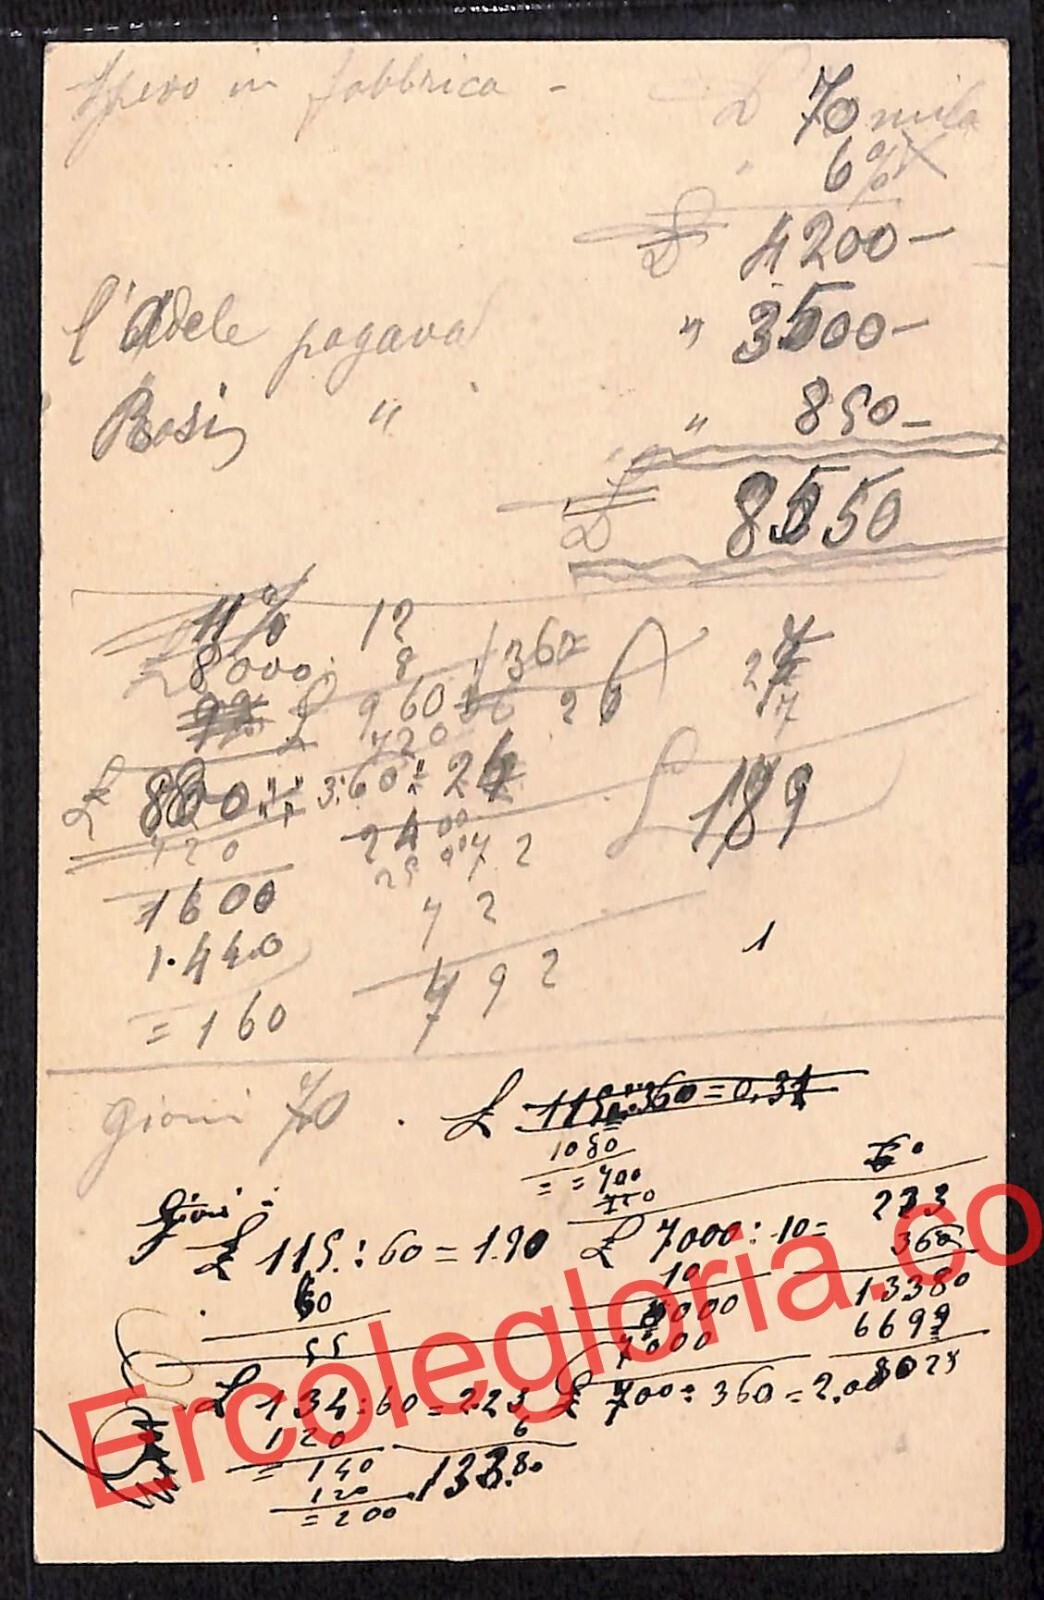 Spero in fabbrica - £ 70 mila
" 6%
£ 4200-
l'Adele pagava " 3500-
Rosi " " 850-
£ 8550
11% 12
8000 8 360
£ 960 26
720
£ 880 : 3.60 = 24
720 2400 £ 189
1600 72
1.440 72
= 160 792
1
Giorni 70 . £ 115 : 360 = 0,31
1080
= = 400
Giorni 223
£ 115 : 60 = 1.90 £ 7000 : 10 = 360
60 10 13380
55 7000 6699
£ 134 : 60 = 2.23 £ 700 : 360 = 2.00
120 6
= 140 133.80
120
= 200
Ercolegloria.co